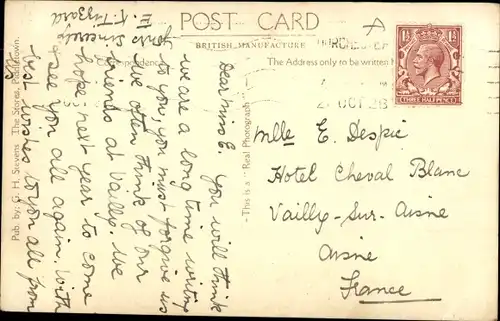 POST CARD
BRITISH MANUFACTURE
The Address only to be written
This is a "Real Photograph"
Pub. by: G. H. Stevens, The Stores,
THREE HALFPENCE
OCT 28
Dear Miss E. You will think
we are a long time writing
to you, you must forgive us
we often think of our
friends at Vailly. We
hope next year to come
& see you all again. With
best wishes to you all from
yours sincerely
Mlle E. Despié
Hotel Cheval Blanc
Vailly-Sur-Aisne
Aisne
France